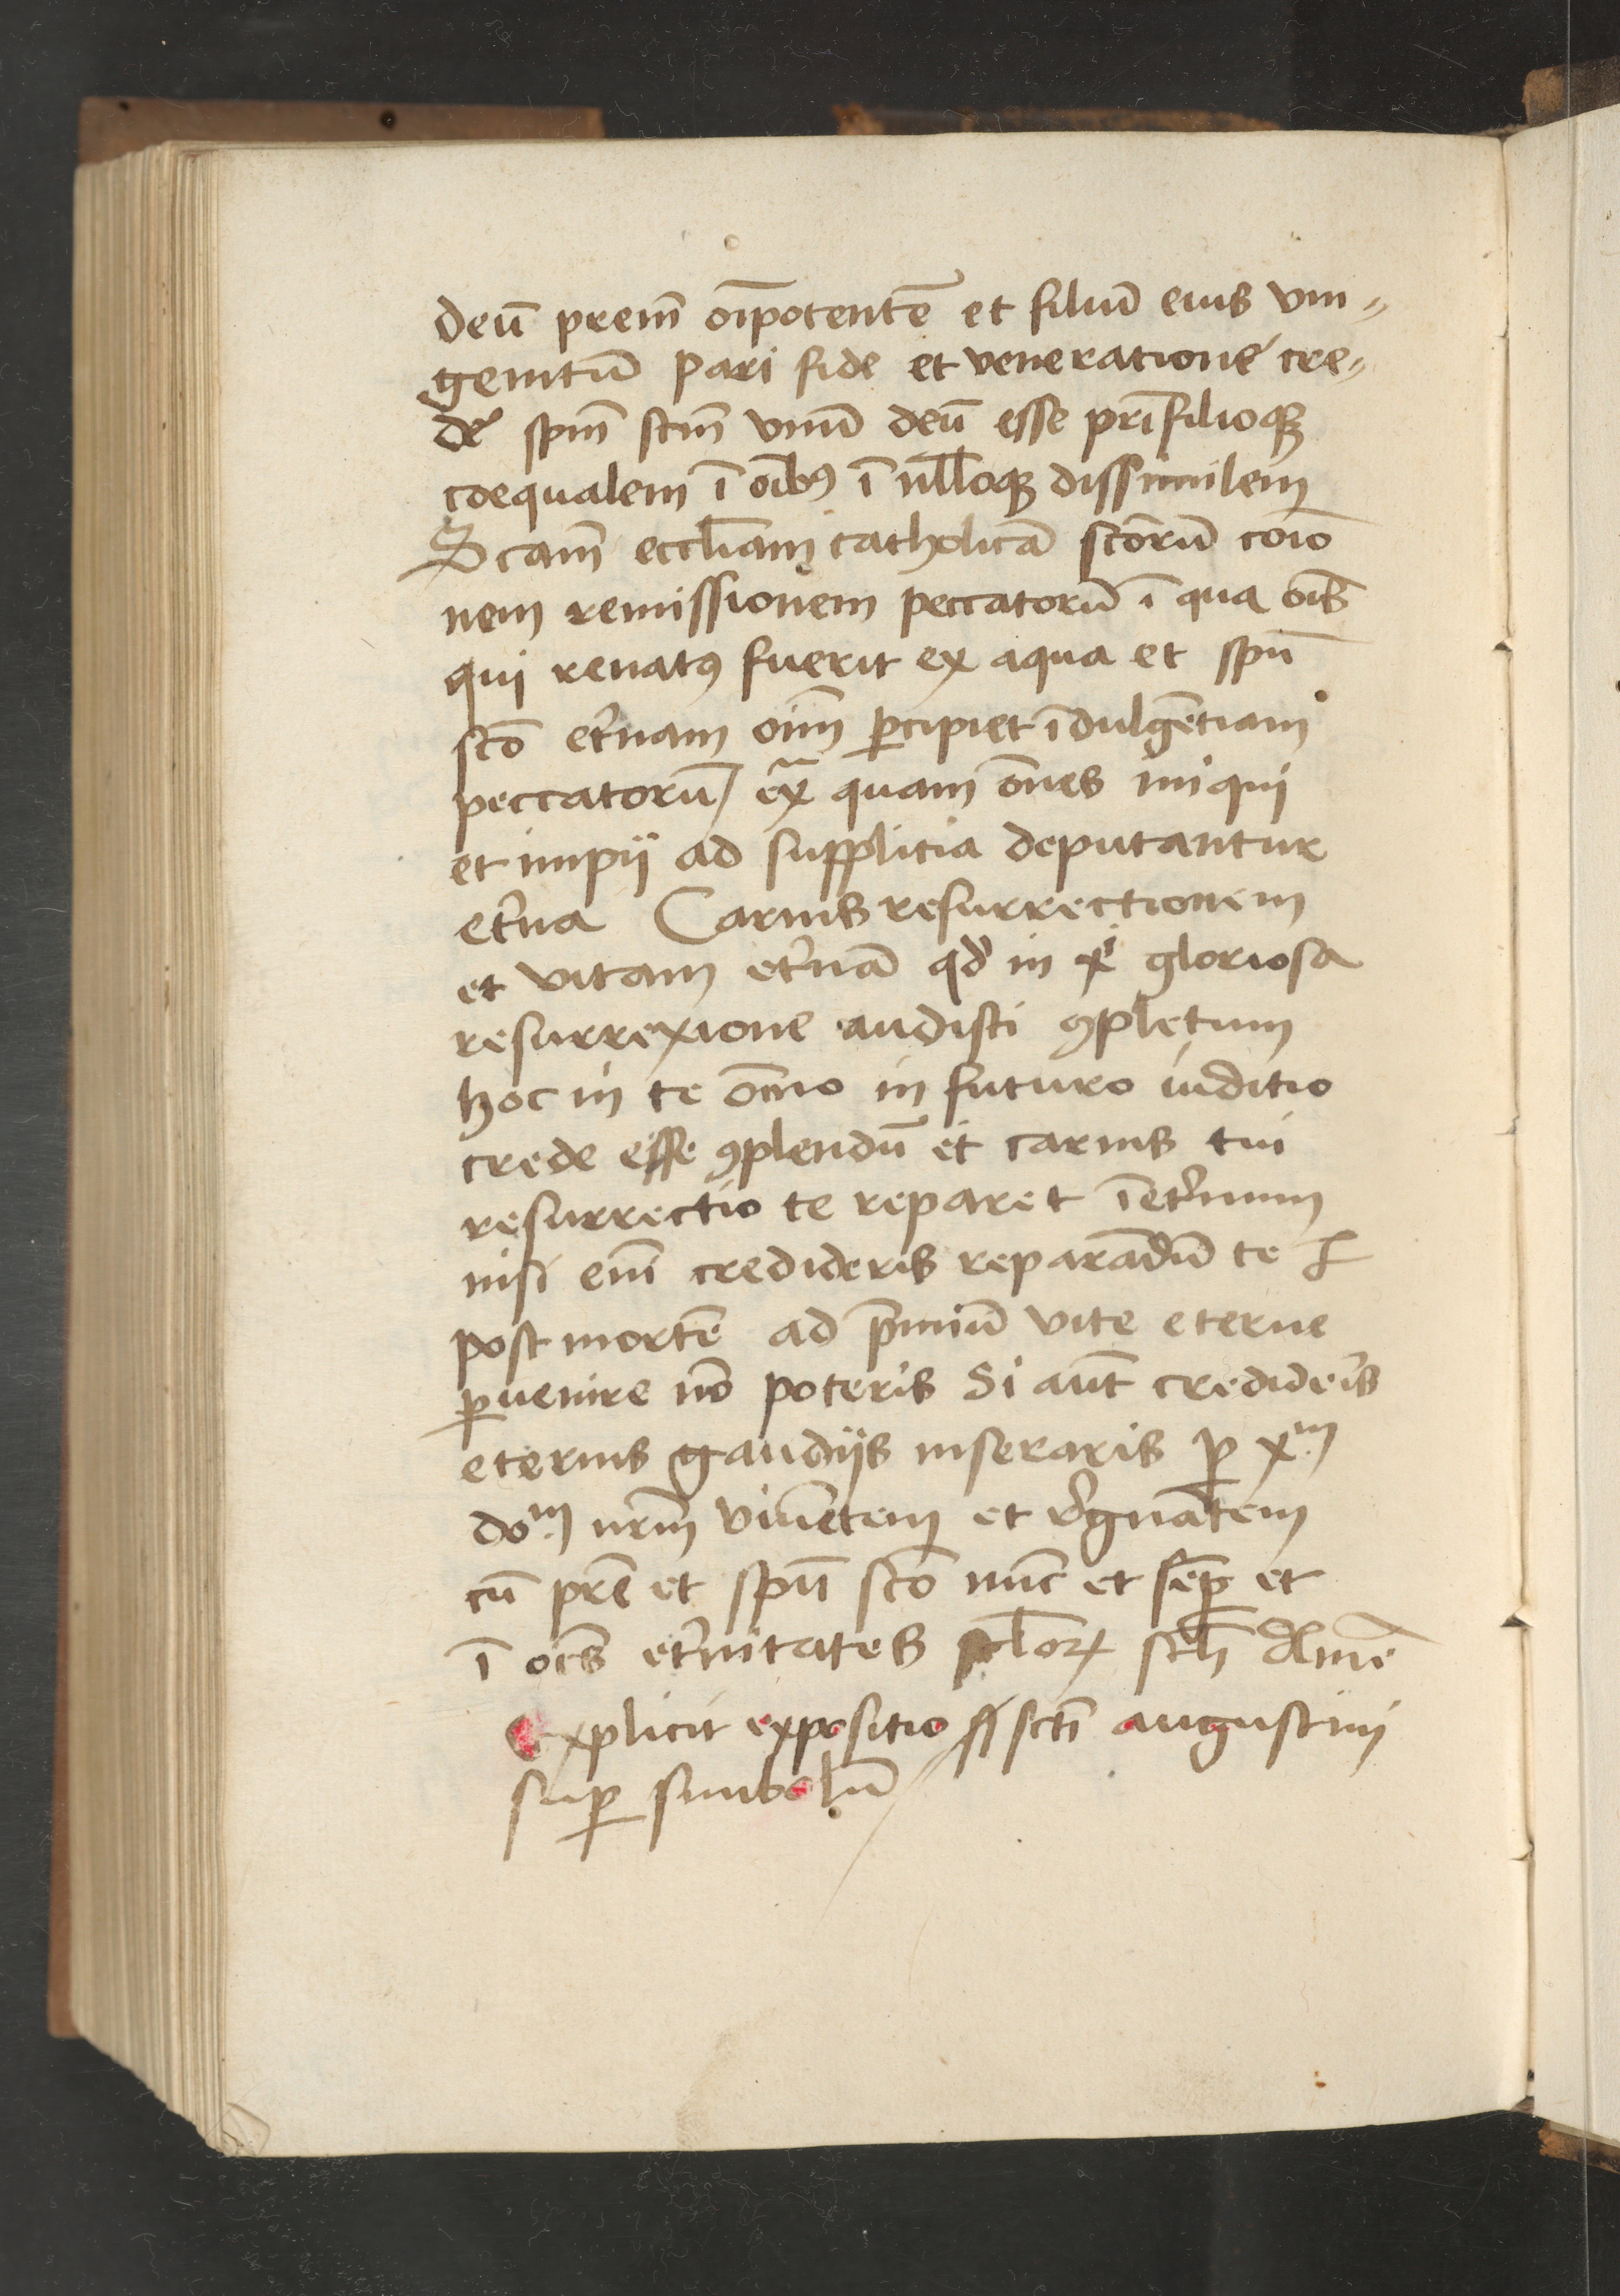 deū prem̄ oīpotentē et filiū eius vni〃
genitū pari fide et veneratione cre〃
de spm̄ scm̄ vnū deū esse pri filioqꝫ
coequalem ī oībꝰ ī nlloqꝫ dissimilem
Scam̄ eccliam catholicā scōrū coīo
nem remissionem peccatorū ī qua oīs
qui renatꝰ fuerit ex aqua et spū
scō et'nam oīm ꝑcipiet īdulgētiam
peccatorū / exᵃ quam ōnes iniqui
et impij ad supplicia deputantur
et'na Carnis resurrectionem
et vitam et'nā qd' in xⁱ gloriosa
resurrexione audisti ꝯpletum
hoc in te oīno in futuro iuditio
crede esse ꝯplendū et carnis tui
resurrectio te reparet īet'num
nisi enī credideris reparādū te
post mortē ad p̄miū vite eterne
ꝑuenire nō poteris Si aūt credideis
eternis gaudijs inseraris ꝑ xᵐ
doᵐ nrm̄ viuētem et r'gnātem
cū prē et spū scō nūc et sēꝑ et
ī oēs et'nitates sclōꝝ scłi Amē
Explicit expositio scti augustini
suꝑ simbolū